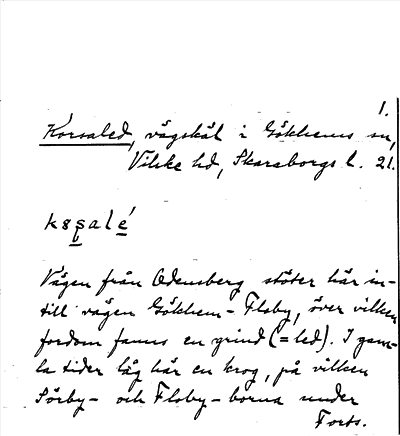 1.
Korsaled, vägskäl i Gökhems sn,
Vilske hd, Skaraborgs l. 21.
kɞsalé
Vägen från Odensberg stöter här in-
till vägen Gökhem-Floby, över vilken
fordom fanns en grind (= led). I gam-
la tider låg här en krog, på vilken
Sörby- och Floby-borna under
Forts.